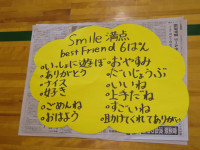 Smile 満点
best Friend 6はん
・いっしょに遊ぼ
・ありがとう
・ナイス
・好き
・ごめんね
・おはよう
・おやすみ
・だいじょうぶ
・いいね
・上手だね
・すごいね
・声かけてくれてありがとう